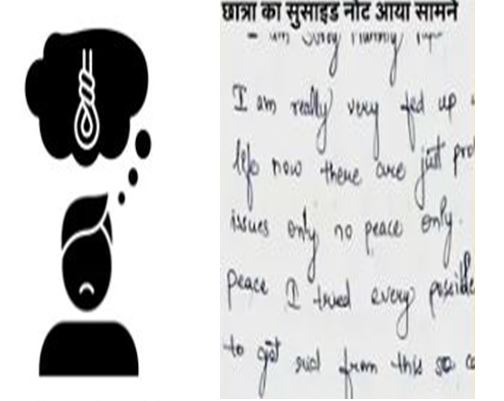 छात्रा का सुसाइड नोट आया सामने
I am really very fed up
life now there are just
issues only no peace only.
peace I tried every possible
to get rid from this so